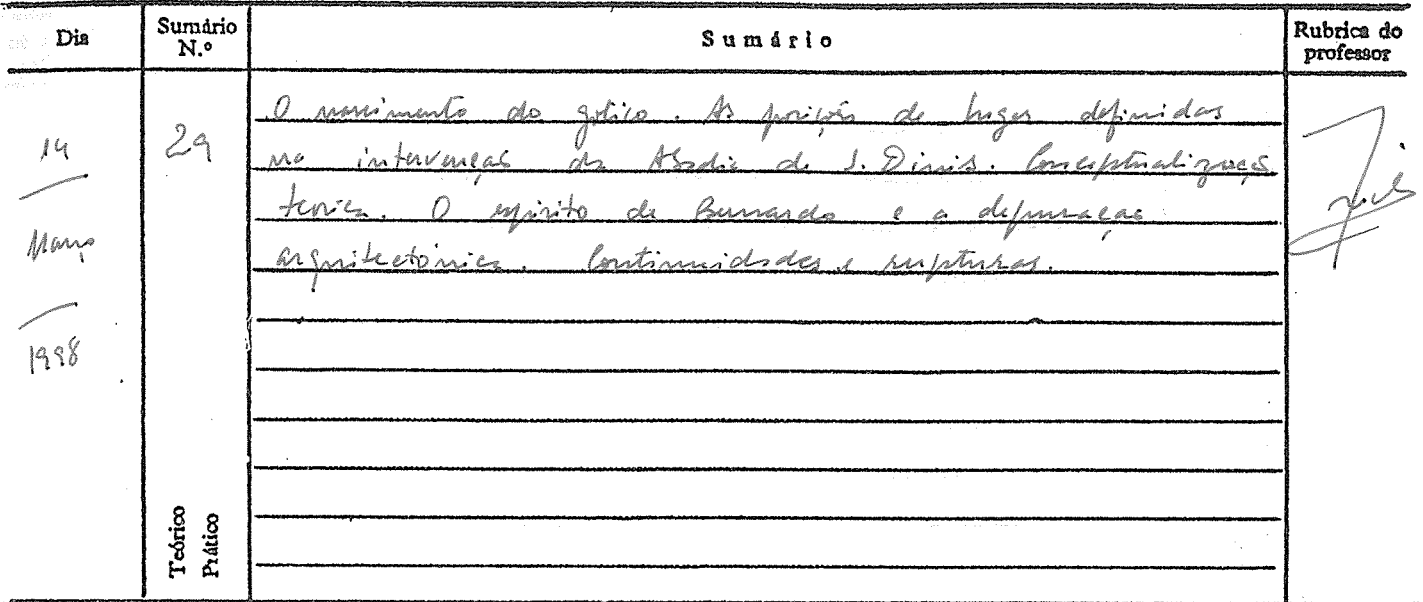 Dia
Sumário
N.º
Sumário
Rubrica do
professor
14
Março
1998
29
O nascimento do gótico. As posições de Suger definidas
na intervenção da Abadia de S. Dinis. Conceptualização
teórica. O espírito de Bernardo e a depuração
arquitectónica. Continuidades e rupturas.
Teórico
Prático